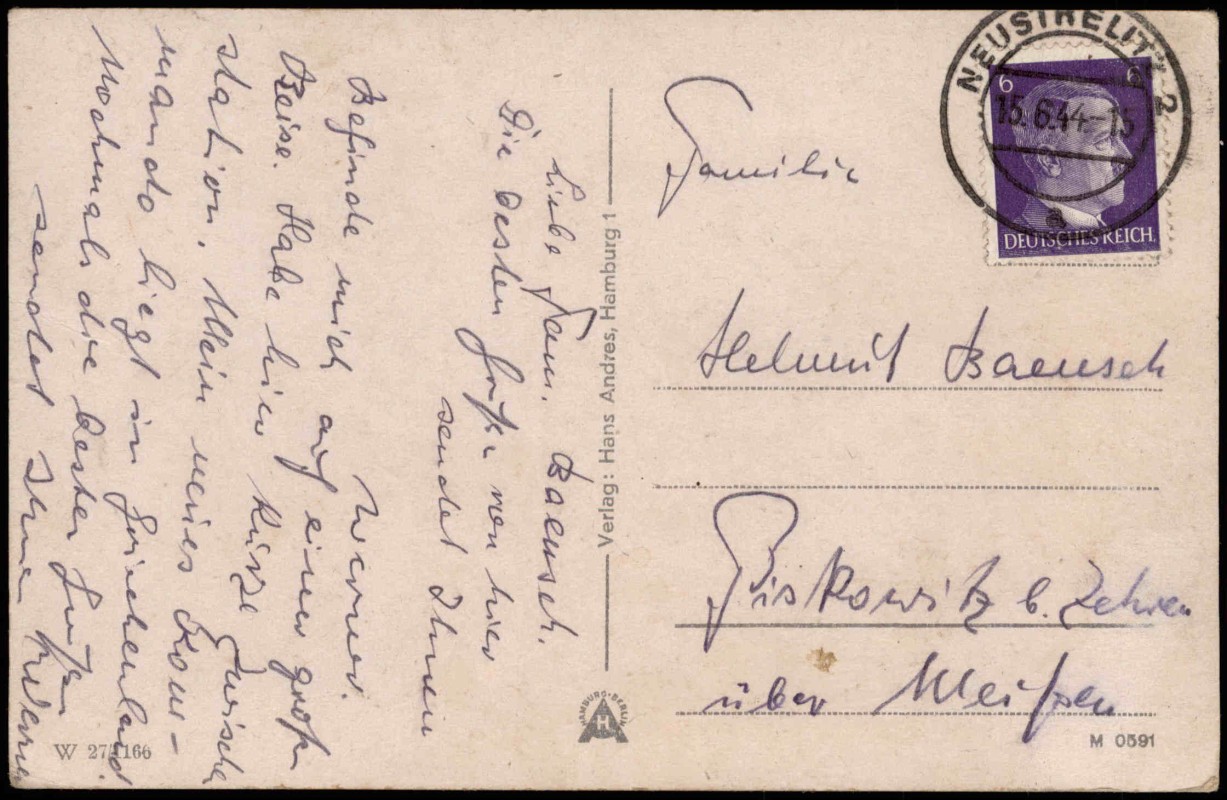 Liebe Fam. Baensch.
Die besten Grüße von hier
sendet Ihnen
Werner.
Befinde mich auf einer großen
Reise. Habe hier kurze
station. Mein neues Kom-
mando liegt in Grichenland
Nochmals die besten Grüße
sendet Ihnen Werner
Verlag: Hans Andres, Hamburg 1
HAMBURG-BERLIN
H
W 27 166
NEUSTRELITZ 2
15.6.44.-15
a
6 6
DEUTSCHES REICH
Familie
Helmut Baensch
Piskowitz b. Zehren
über Meißen
M 0591